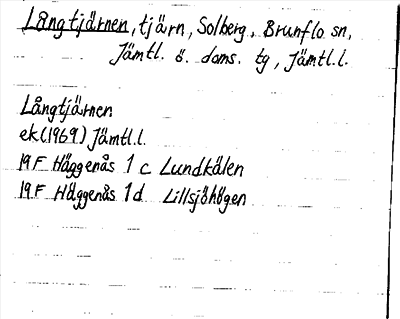 Långtjärnen, tjärn, Solberg, Brunflo sn,
Jämtl. ö. doms. tg, Jämtl.l.
Långtjärnen
ek(1969) Jämtl.l.
19F Häggenås 1 c Lundkälen
19F Häggenås 1 d Lillsjöhögen